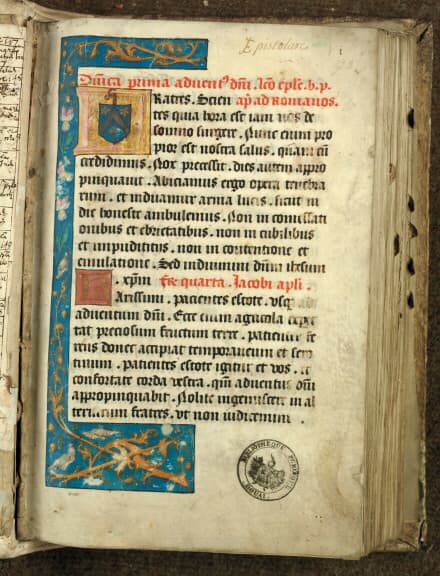 Epistolare
Dñica prima adventꝰ dñi. lc̃o eple. b. p.
Ratres. Scien ap̃ ad Romanos.
tes quia hora est iam nos de
somno surgere. Nunc enim pro
pior est nostra salus. quam cũ
credidimus. Nox precessit. dies autem appro
pinquavit. Abiciamus ergo opera tenebra
rum. et induamur arma lucis. sicut in
die honeste ambulemus. Non in comessati
onibus et ebrietatibus. non in cubilibus
et impudicitiis. non in contentione et
emulatione. Sed induimini dñm ihesum
xp̃m. Fr̃ quarta. Jacobi apl̃i.
Arissimi. pacientes estote. usqꝫ ad
adventum dñi. Ecce enim agricola expec
tat preciosum fructum terre. pacienter fe
rens donec accipiat temporaneum et sero
tinum. pacientes estote igitur et vos. et
confortate corda vestra. qm̃ adventus dñi
appropinquabit. Nolite ingemiscere in al
terutrum fratres. ut non iudicemini.
BIBLIOTHEQUE PUBLIQUE
DOUAI